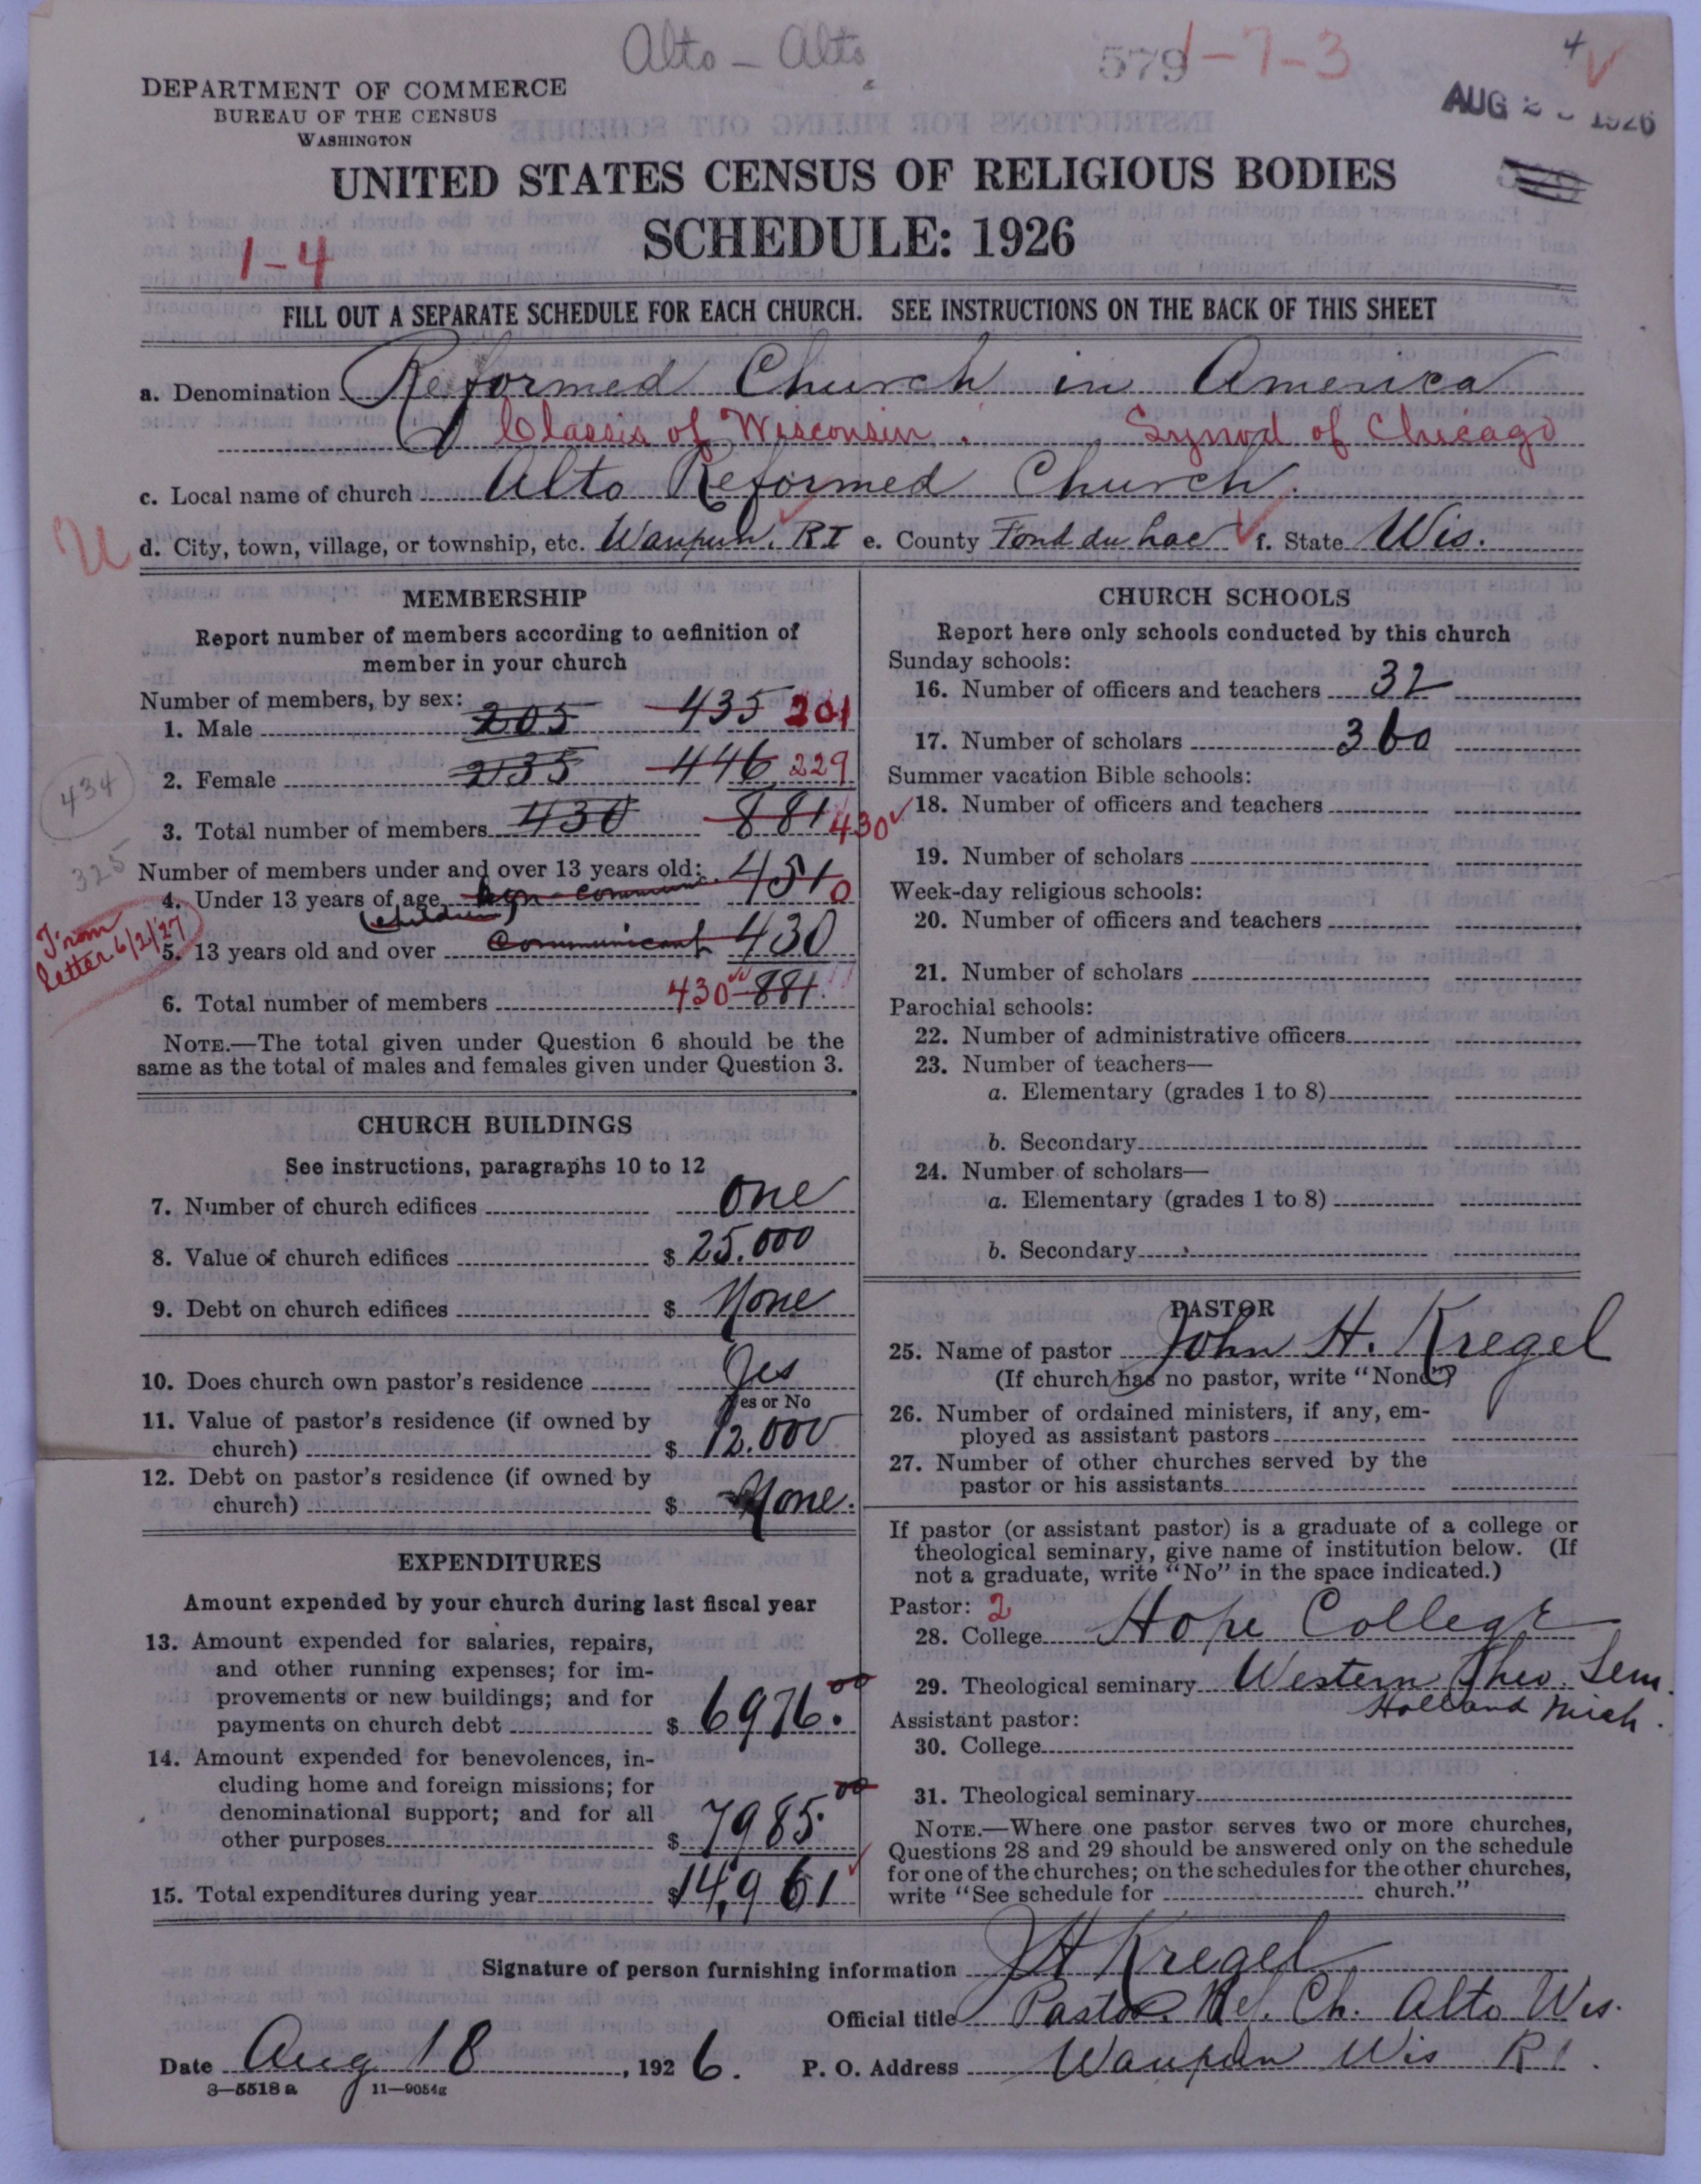 Alto - Alto
579 1-7-3
4
AUG 1926
DEPARTMENT OF COMMERCE
BUREAU OF THE CENSUS
WASHINGTON
UNITED STATES CENSUS OF RELIGIOUS BODIES
SCHEDULE: 1926
1-4
FILL OUT A SEPARATE SCHEDULE FOR EACH CHURCH. SEE INSTRUCTIONS ON THE BACK OF THIS SHEET
a. Denomination Reformed Church in America
Classis of Wisconsin. Synod of Chicago
c. Local name of church Alto Reformed Church
U
d. City, town, village, or township, etc. Waupun, R I e. County Fond du Lac f. State Wis.
MEMBERSHIP
Report number of members according to definition of
member in your church
Number of members, by sex:
1. Male 205 435 201
2. Female 2135 446 229
434
3. Total number of members 430 881 430
325
Number of members under and over 13 years old:
4. Under 13 years of age non-commun. 451 0
(children)
From
letter 6/2/27
5. 13 years old and over communicant 430
6. Total number of members 430 881
NOTE.—The total given under Question 6 should be the
same as the total of males and females given under Question 3.
CHURCH BUILDINGS
See instructions, paragraphs 10 to 12
7. Number of church edifices One
8. Value of church edifices $ 25.000
9. Debt on church edifices $ None
10. Does church own pastor's residence Yes
Yes or No
11. Value of pastor's residence (if owned by
church) $ 12.000
12. Debt on pastor's residence (if owned by
church) $ None.
EXPENDITURES
Amount expended by your church during last fiscal year
13. Amount expended for salaries, repairs,
and other running expenses; for im-
provements or new buildings; and for
payments on church debt $ 6976.00
14. Amount expended for benevolences, in-
cluding home and foreign missions; for
denominational support; and for all
other purposes $ 7985.00
15. Total expenditures during year $ 14,961
CHURCH SCHOOLS
Report here only schools conducted by this church
Sunday schools:
16. Number of officers and teachers 32
17. Number of scholars 360
Summer vacation Bible schools:
18. Number of officers and teachers
19. Number of scholars
Week-day religious schools:
20. Number of officers and teachers
21. Number of scholars
Parochial schools:
22. Number of administrative officers
23. Number of teachers—
a. Elementary (grades 1 to 8)
b. Secondary
24. Number of scholars—
a. Elementary (grades 1 to 8)
b. Secondary
PASTOR
25. Name of pastor John H. Kregel
(If church has no pastor, write "None")
26. Number of ordained ministers, if any, em-
ployed as assistant pastors
27. Number of other churches served by the
pastor or his assistants
If pastor (or assistant pastor) is a graduate of a college or
theological seminary, give name of institution below. (If
not a graduate, write "No" in the space indicated.)
Pastor: 2
28. College Hope College
29. Theological seminary Western Theo. Sem.
Holland Mich.
Assistant pastor:
30. College
31. Theological seminary
NOTE.—Where one pastor serves two or more churches,
Questions 28 and 29 should be answered only on the schedule
for one of the churches; on the schedules for the other churches,
write "See schedule for church."
Signature of person furnishing information J H Kregel
Official title Pastor Ref. Ch. Alto Wis.
Date Aug 18, 1926. P. O. Address Waupun Wis R 1.
3—5518 a 11—9054g